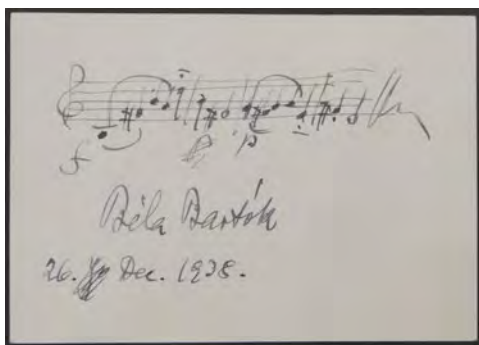 f p
Béla Bartók
26. Dec. 1938.